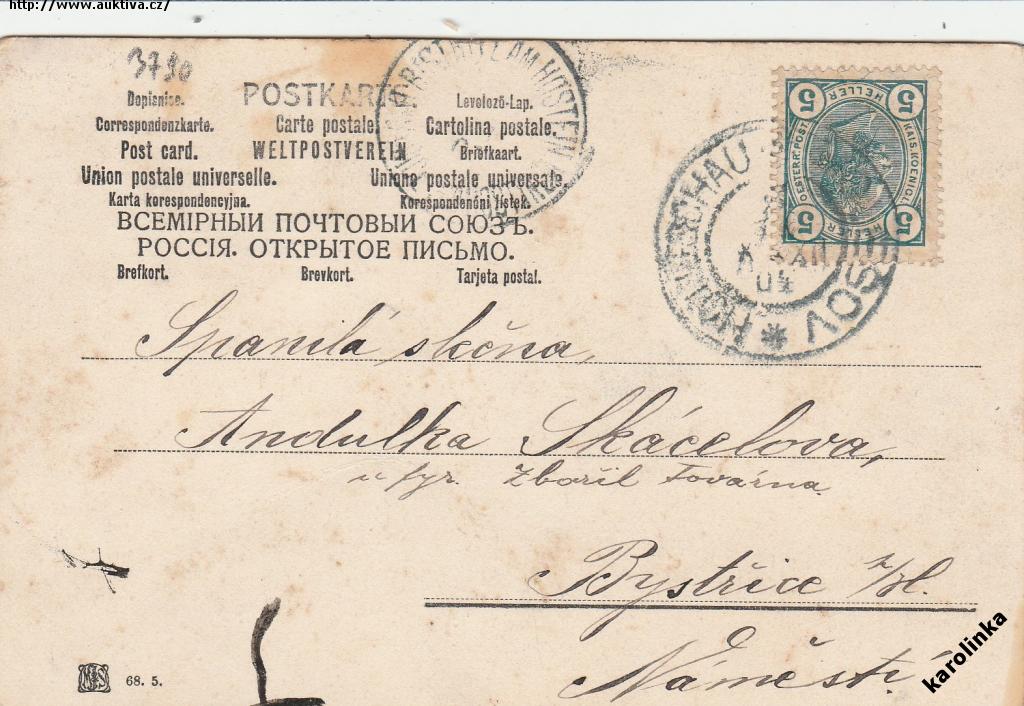 http://www.auktiva.cz/
3790
Dopisnice. POSTKARTE Levelező-Lap.
Correspondenzkarte. Carte postale. Cartolina postale.
Post card. WELTPOSTVEREIN Briefkaart.
Union postale universelle. Unione postale universale.
Karta korespondencyjna. Korespondenčni listek.
ВСЕМІРНЫЙ ПОЧТОВЫЙ СОЮЗЪ.
РОССІЯ. ОТКРЫТОЕ ПИСЬМО.
Brefkort. Brevkort. Tarjeta postal.
AM HOSTEIN
HOLLESCHAU
04
5 HELLER 5
OESTERR. POST KAIS. KOENIGL.
5 HELLER 5
Spanilá slečna,
Andulka Skácelova,
u fyr. Zbořil Továrna.
Bystřice /H.
Náměstí
68. 5.
karolinka